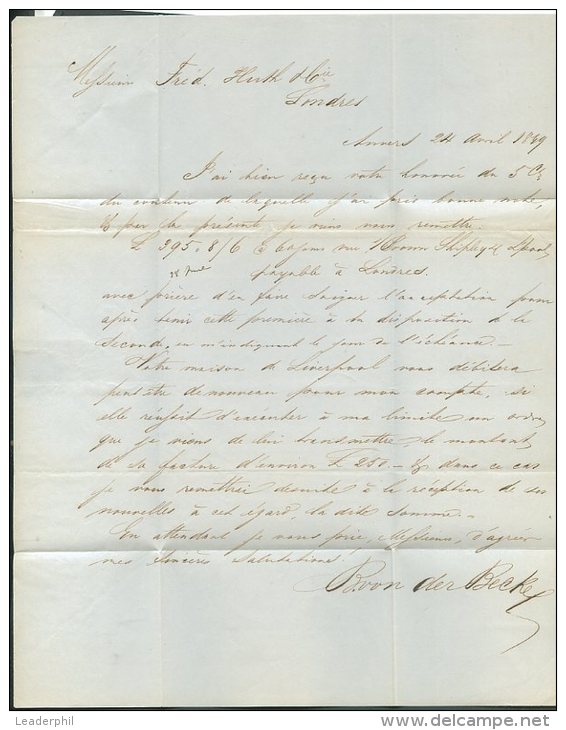 Messieurs Fréd. Huth & Cie
Londres
Anvers 24 Avril 1849
J'ai bien reçu votre honorée du 5 Ct
du contenu de laquelle j'ai pris bonne note,
& par la présente je viens vous remettre
£ 395.8/6 à 60 jours vue Brown Shipley & Lpool
payable à Londres.
avec prière d'en faire soigner l'acceptation pour
après tenir cette première à la disposition de la
Seconde, en m'indiquant le jour de l'échéance.-
Votre maison de Liverpool vous débitera
peut être de nouveau pour mon compte, si
elle réussit d'exécuter à ma limite un ordre
que je viens de lui transmettre, le montant
de sa facture d'environ £ 250.- & dans ce cas
je vous remettrai desuite à la réception de ses
nouvelles à cet égard, la dite somme.-
En attendant je vous prie, Messieurs, d'agréer
mes sincères salutations.
B. von der Becke
Leaderphil
www.delcampe.net